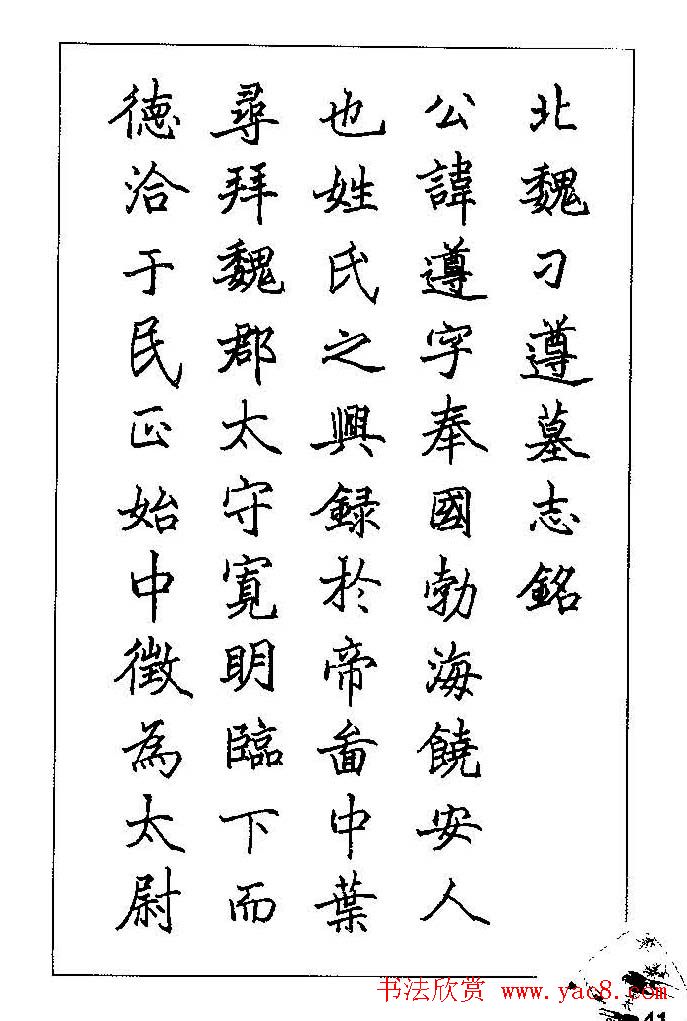 北魏刁遵墓志銘
公諱遵字奉國勃海饒安人
也姓氏之興録於帝啚中葉
尋拜魏郡太守寬明臨下而
德洽于民正始中徵為太尉
书法欣赏 www.yac8.com
41